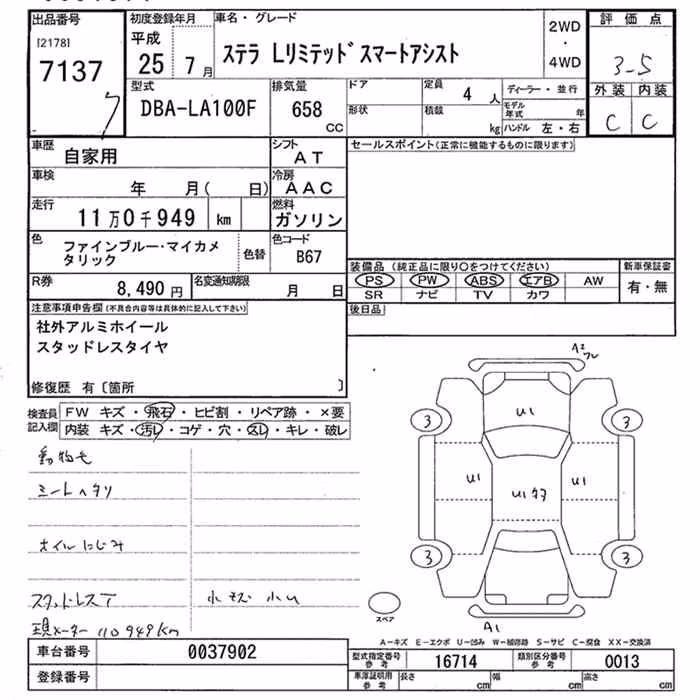 出品番号 初度登録年月 車名・グレード 2WD・4WD 評価点
[2178] 平成 ステラ Lリミテッド スマートアシスト 3-5
7137 25 7月
型式 排気量 ドア 定員 4人 ディーラー・並行 外装 内装
DBA-LA100F 658cc 形状 積載 kg モデル年式 年 C C
ハンドル 左・右
車歴 自家用 シフト AT セールスポイント(正常に機能するものに限ります)
車検 年 月( 日) 冷房 AAC
走行 11万0千949 km 燃料 ガソリン
色 ファインブルー・マイカメタリック 色替 色コード B67
装備品(純正品に限り○をつけてください) 新車保証書
PS PW ABS エアB AW 有・無
SR ナビ TV カワ
R券 8,490円 名変通知期限 月 日
後日品
注意事項申告欄(不具合内容等は具体的に記入して下さい)
社外アルミホイール
スタッドレスタイヤ
修復歴 有〔箇所 〕
検査員記入欄 FW キズ・飛石・ヒビ割・リペア跡・×要
内装 キズ・汚レ・コゲ・穴・スレ・キレ・破レ
動物毛
シートヘタリ
オイルにじみ
スタッドレスT
現メーター 110949km
A2
3 U1 3
U1 U1 U1
3 3
スペア A1
A-キズ E-エクボ U-凹み W-補修跡 S-サビ C-腐食 XX-交換済
車台番号 0037902 型式指定番号 参考 16714 類別区分番号 参考 0013
登録番号 車庫証明用 参考 長さ cm 幅 cm 高さ cm